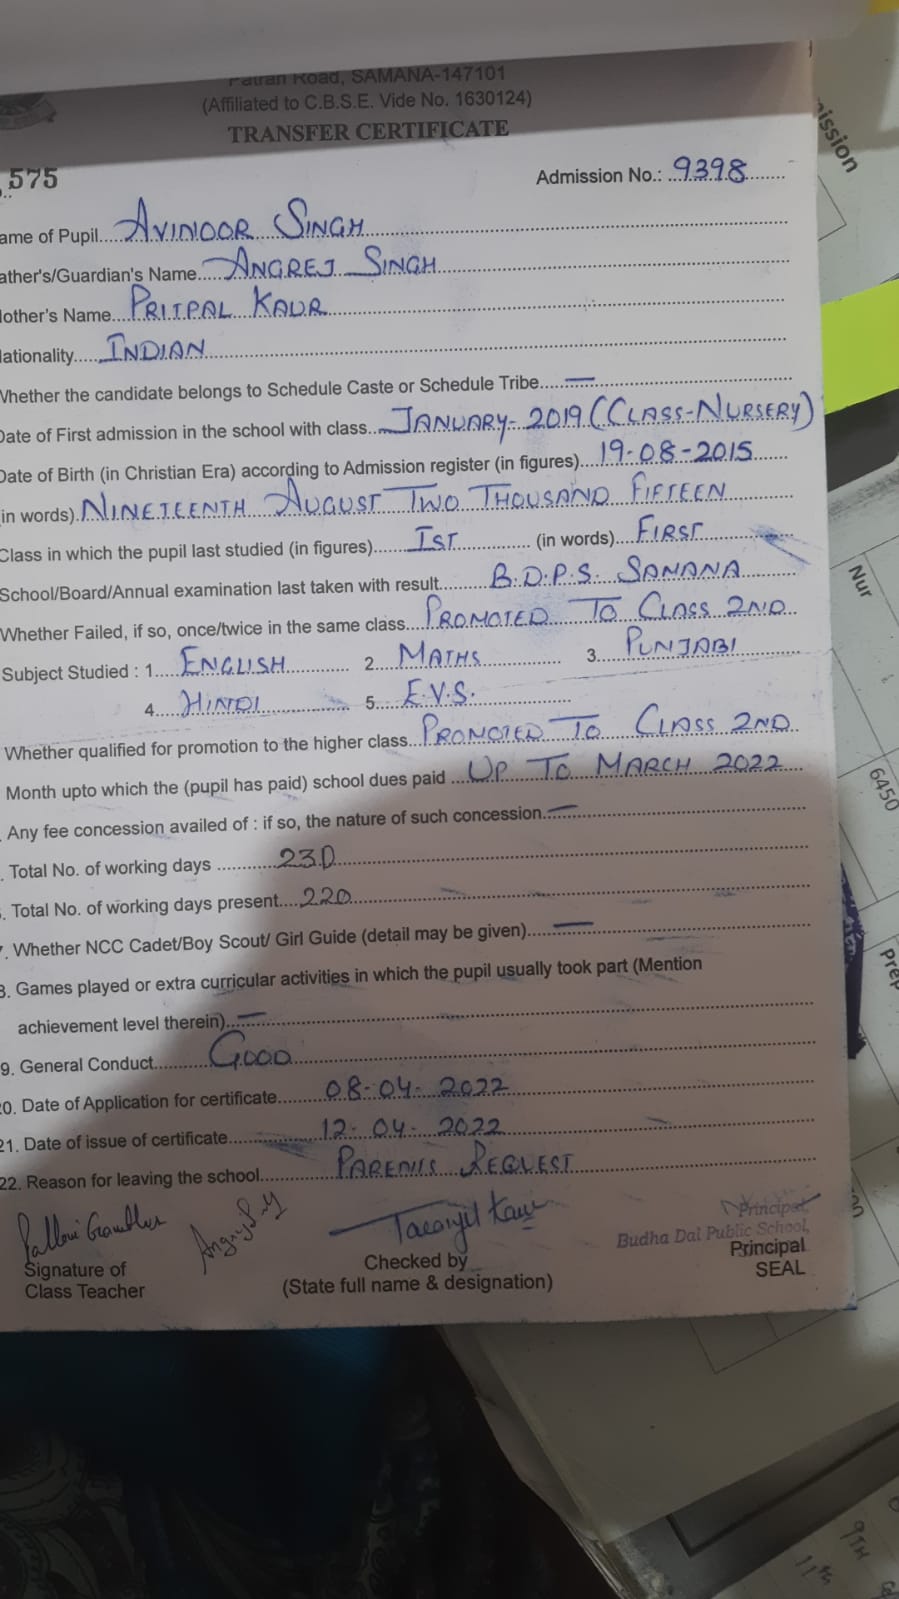 Patran Road, SAMANA-147101
(Affiliated to C.B.S.E. Vide No. 1630124)
TRANSFER CERTIFICATE
575 Admission No.: 9398
ame of Pupil AVINOOR SINGH
ather's/Guardian's Name ANGREJ SINGH
other's Name PRITPAL KAUR
ationality INDIAN
Whether the candidate belongs to Schedule Caste or Schedule Tribe —
Date of First admission in the school with class JANUARY-2019 (CLASS-NURSERY)
Date of Birth (in Christian Era) according to Admission register (in figures) 19-08-2015
in words) NINETEENTH AUGUST TWO THOUSAND FIFTEEN
Class in which the pupil last studied (in figures) IST (in words) FIRST
School/Board/Annual examination last taken with result B.D.P.S. SAMANA
Whether Failed, if so, once/twice in the same class PROMOTED TO CLASS 2ND
Subject Studied : 1 ENGLISH 2 MATHS 3 PUNJABI
4 HINDI 5 E.V.S.
Whether qualified for promotion to the higher class PROMOTED TO CLASS 2ND
Month upto which the (pupil has paid) school dues paid UP TO MARCH 2022
Any fee concession availed of : if so, the nature of such concession —
. Total No. of working days 230
. Total No. of working days present 220
. Whether NCC Cadet/Boy Scout/ Girl Guide (detail may be given) —
8. Games played or extra curricular activities in which the pupil usually took part (Mention
achievement level therein) —
9. General Conduct GOOD
20. Date of Application for certificate 08-04-2022
21. Date of issue of certificate 12-04-2022
22. Reason for leaving the school PARENTS REQUEST
Principal,
Budha Dal Public School,
Signature of Checked by Principal
Class Teacher (State full name & designation) SEAL
ission
Nur
6450
Prep
9TH
11th